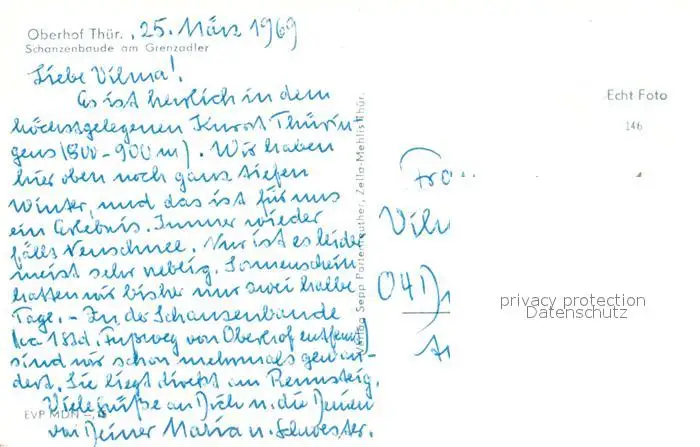 Oberhof Thür. , 25. März 1969
Schanzenbaude am Grenzadler
Liebe Vilma!
Es ist herrlich in dem
höchstgelegenen Kurort Thürin-
gens (800-900 m). Wir haben
hier oben noch ganz tiefen
Winter, und das ist für uns
ein Erlebnis. Immer wieder
fällt Neuschnee. Nur ist es leider
meist sehr neblig. Sonnenschein
hatten wir bisher nur zwei halbe
Tage. - In der Schanzenbaude
(ca 1 Std. Fußweg von Oberhof entfernt)
sind wir schon mehrmals gewan-
dert. Sie liegt direkt am Rennsteig.
Viele Grüße an Dich u. die Deinen
von Deiner Maria u. Schwester.
EVP MDN
Verlag Sepp Partenreuther, Zella-Mehlis Thür.
Echt Foto
146
Fra
Vilm
(041)
privacy protection
Datenschutz